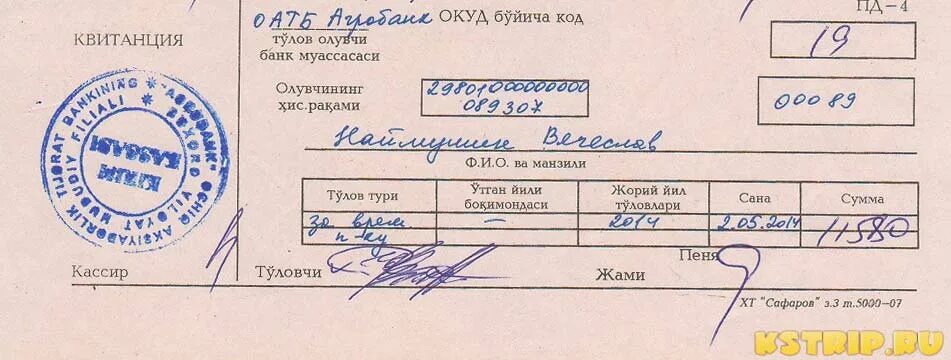 ПД-4
ОАТБ Агробанк ОКУД бўйича код
19
КВИТАНЦИЯ
тўлов олувчи
банк муассасаси
Олувчининг
ҳис.рақами
29801000000000
089307
00089
Наймушин Вечеслав
Ф.И.О. ва манзили
"AGROBANK" OCHIQ AKSIYADORLIK TIJORAT BANKINING
BUXORO VILOYAT HUDUDIY FILIALI
KIRIM
KASSASI
Тўлов тури
Ўтган йили
боқимондаси
Жорий йил
тўловлари
Сана
Сумма
за врем.
п-ку
—
2014
2.05.2014
11580
Пеня
Кассир
Тўловчи
Жами
ХТ "Сафаров" з.3 т.5000—07
KSTRIP.RU